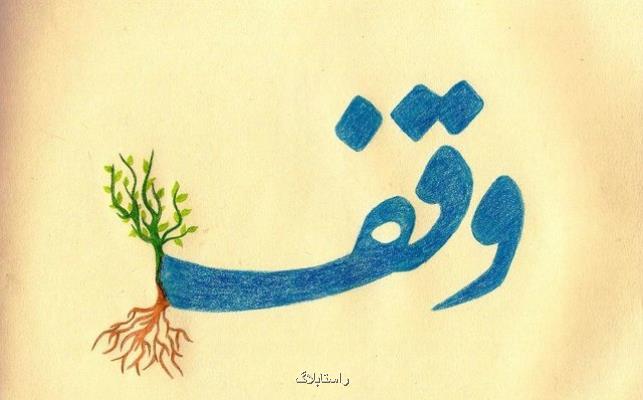 وقف
راستابلاگ